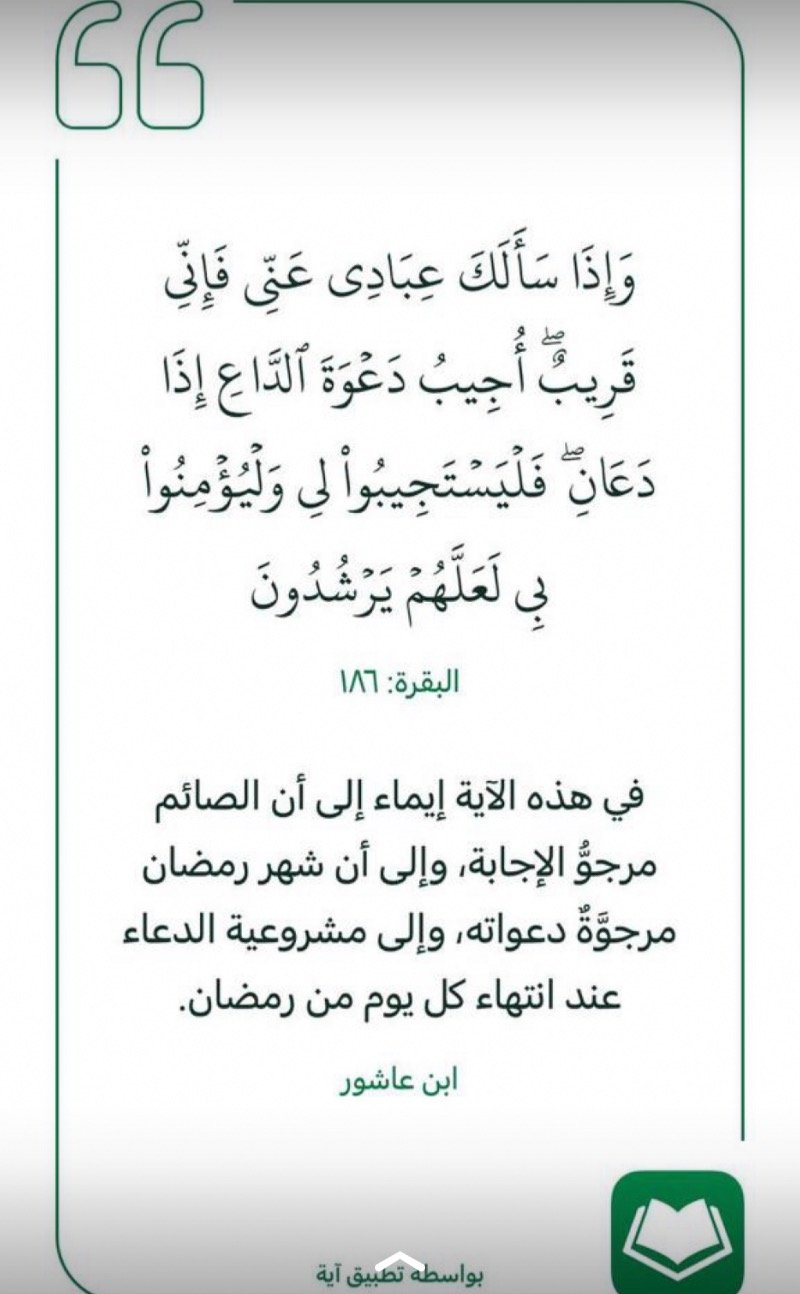 وَإِذَا سَأَلَكَ عِبَادِى عَنِّى فَإِنِّى
قَرِيبٌ ۖ أُجِيبُ دَعْوَةَ ٱلدَّاعِ إِذَا
دَعَانِ ۖ فَلْيَسْتَجِيبُوا۟ لِى وَلْيُؤْمِنُوا۟
بِى لَعَلَّهُمْ يَرْشُدُونَ
البقرة: ١٨٦
في هذه الآية إيماء إلى أن الصائم
مرجوُّ الإجابة، وإلى أن شهر رمضان
مرجوَّةٌ دعواته، وإلى مشروعية الدعاء
عند انتهاء كل يوم من رمضان.
ابن عاشور
بواسطة تطبيق آية